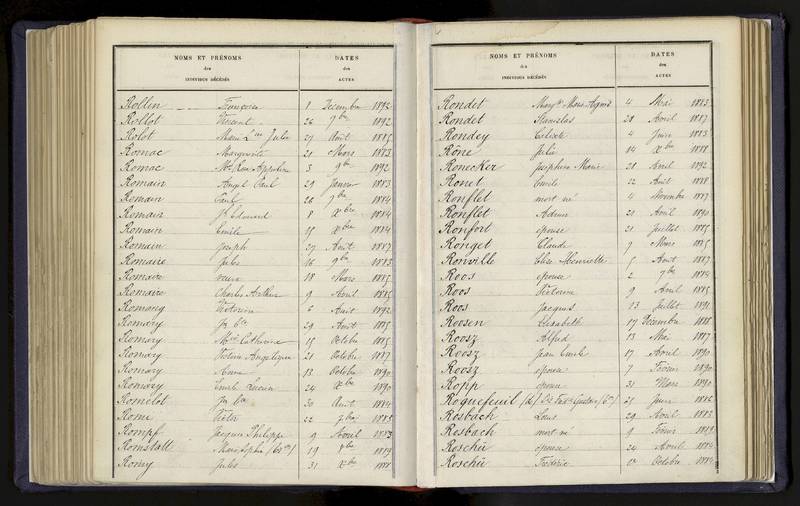 NOMS ET PRÉNOMS
des
INDIVIDUS DÉCÉDÉS
DATES
des
ACTES
Rollin Françoise 1 Décembre 1892
Rollot Vincent 26 9bre 1892
Rolot 27 Août 1885
Romac Marguerite 21 Mars 1883
Romac 3 9bre 1892
Romain Angel Paul 29 Janvier 1883
Romain Paul 26 9bre 1884
Romain Jh Edouard 8 Xbre 1884
Romain Emile 15 Xbre 1884
Romain Joseph 27 Août 1887
Romaire Jules 16 9bre 1883
Romaire 18 Mars 1885
Romaire Charles Arthur 9 Avril 1885
Romang Victorine 6 Août 1892
Romary 29 Août 1885
Romary Catherine 15 Octobre 1885
Romary Angelique 21 Octobre 1887
Romary Anne 13 Octobre 1890
Romary Lucien 24 Xbre 1890
Romelot 30 Août 1884
Rome 22
Rompf Jacques Philippe 9 Avril 1883
Romstatt Marie Sophie 19
Romy Jules 31 Xbre 1888
NOMS ET PRÉNOMS
des
INDIVIDUS DÉCÉDÉS
DATES
des
ACTES
Rondet 4 Mai 1883
Rondet Stanislas 28 Avril 1887
Rondey Céleste 4 Juin 1883
Rône Julie 14 Xbre 1888
Ronecker Joséphine Marie 28 Avril 1892
Ronet Emile 22 Août 1888
Ronflet mort né 4 Novembre 1887
Ronflet Adrien 21 Avril 1890
Ronfort épouse 21 Juillet 1885
Ronget Claude 9 Mars 1885
Ronville Elise Henriette 5 Août 1887
Roos épouse 2 9bre 1884
Roos Victorine 9 Avril 1885
Roos Jacques 13 Juillet 1891
Roosen Elisabeth 17 Décembre 1888
Roosz Alfred 13 Mai 1887
Roosz Jean Emile 17 Avril 1890
Roosz épouse 7 Février 1890
Ropp épouse 31 Mars 1890
Roquefeuil 21 Juin 1882
Rosbach Louis 29 Avril 1883
Rosbach mort né 9 Février
Roschü épouse 24 Avril 1884
Roschü Frédéric Octobre 1884